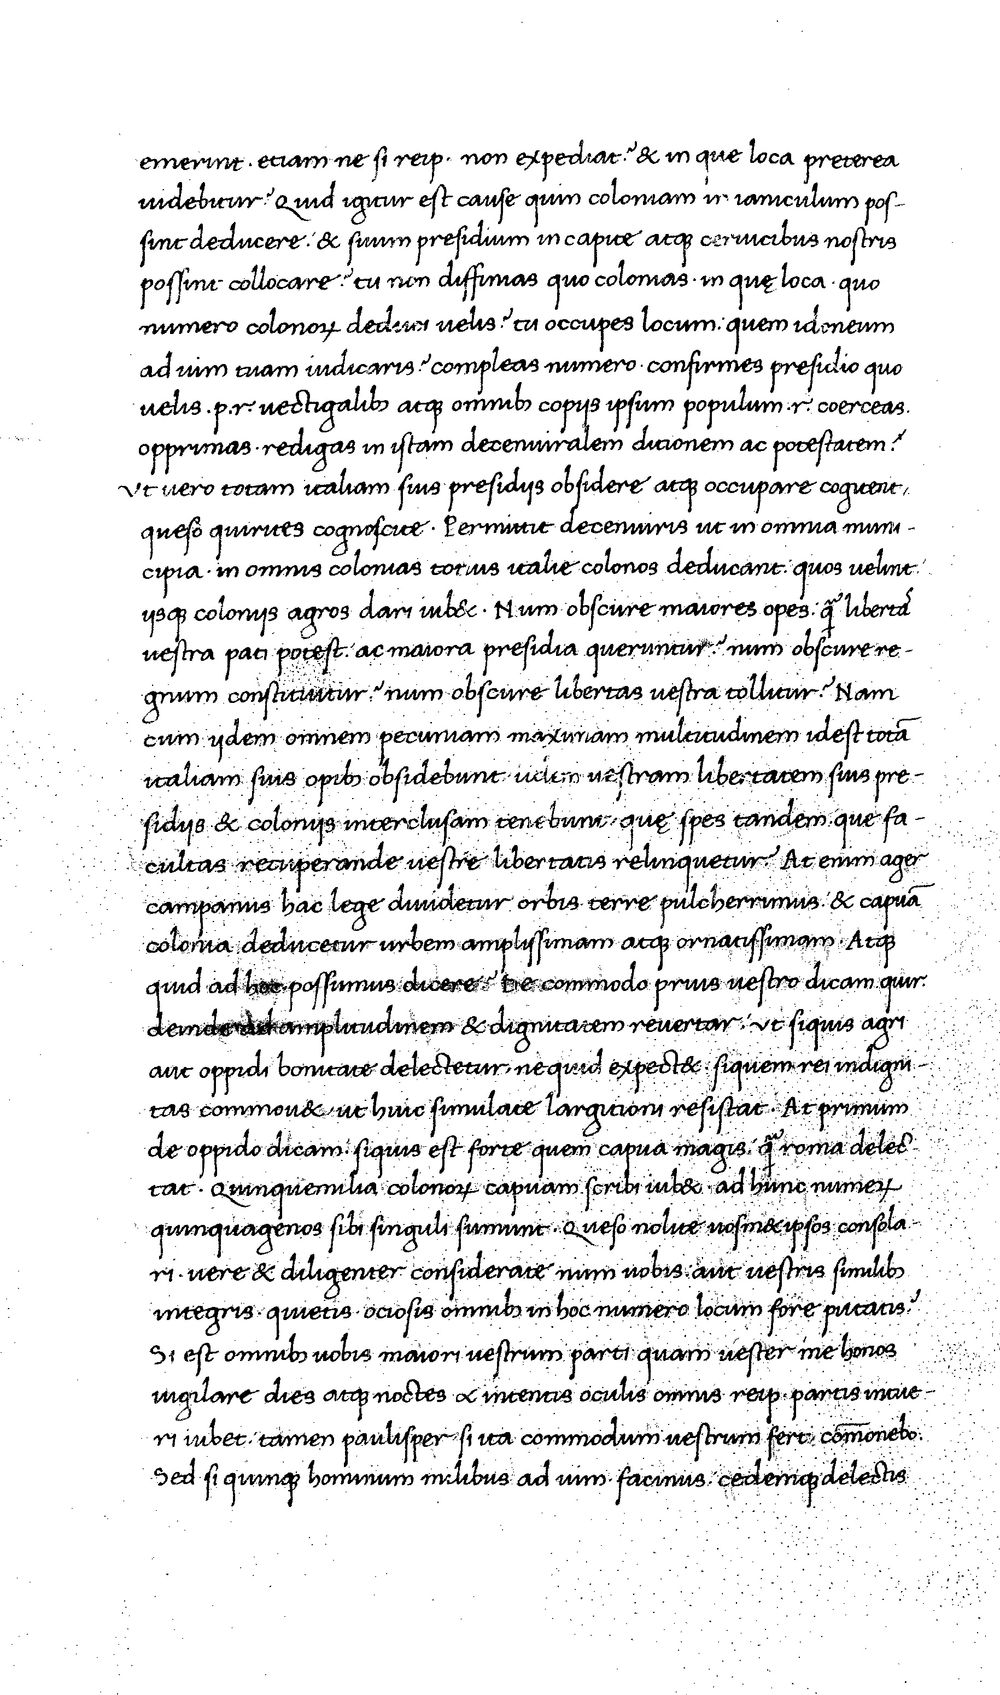 emerint · etiam ne si reip · non expediat? & in que loca preterea
uidebitur? Quid igitur est cause quin coloniam in ianiculum pos-
sint deducere: & suum presidium in capite atq; ceruicibus nostris
possint collocare? tu non diffinias quo colonias · in quę loca · quo
numero colonoꝝ deduci uelis? tu occupes locum: quem idoneum
ad uim tuam iudicaris? compleas numero · confirmes presidio quo
uelis · p. r. uectigalib; atq; omnib; copijs ipsum populum · r. coerceas.
opprimas · redigas in istam decemuiralem dicionem ac potestatem?
Vt uero totam italiam suis presidijs obsidere atq; occupare cogitent,
queso quirites cognoscite · Permittit decemuiris ut in omnia muni-
cipia · in omnis colonias totius italie colonos deducant: quos uelint:
ijsq; colonijs agros dari iub& · Num obscure maiores opes: q̃ libertaˢ
uestra pati potest: ac maiora presidia queruntur? num obscure re-
gnum constituitur? num obscure libertas uestra tollitur? Nam
cum ijdem omnem pecuniam maximam multitudinem idest totā
italiam suis opib; obsidebunt iidem uestram libertatem suis pre-
sidijs & colonijs interclusam tenebunt, quę spes tandem que fa-
cultas recuperande uestre libertatis relinquetur? At enim ager
campanus hac lege diuidetur orbis terre pulcherrimus: & capuā
colonia deducetur urbem amplissimam atq; ornatissimam · Atq;
quid ad hoc possumus dicere? De commodo prius uestro dicam quir.
deinde ad amplitudinem & dignitatem reuertar: Vt siquis agri
aut oppidi bonitate delectetur, nequid expect& · siquem rei indigni-
tas commou& · ut huic simulate largitioni resistat · At primum
de oppido dicam: siquis est forte quem capua magis: q̃ roma delec-
tat · Quinquemilia colonoꝝ capuam scribi iub& · ad hunc numeꝝ
quinquagenos sibi singuli sumunt · Queso nolite uosm& ipsos consola-
ri · uere & diligenter considerate num uobis aut uestris similib;
integris · quietis · ociosis omnib; in hoc numero locum fore putatis?
Si est omnib; uobis maiori uestrum parti quam uester me honos
uigilare dies atq; noctes & intentis oculis omnis reip · partis intue-
ri iubet: tamen paulisper · si ita commodum uestrum fert: com̄onebo:
Sed si quinq; hominum milibus ad uim · facinus · cedemq; delectis